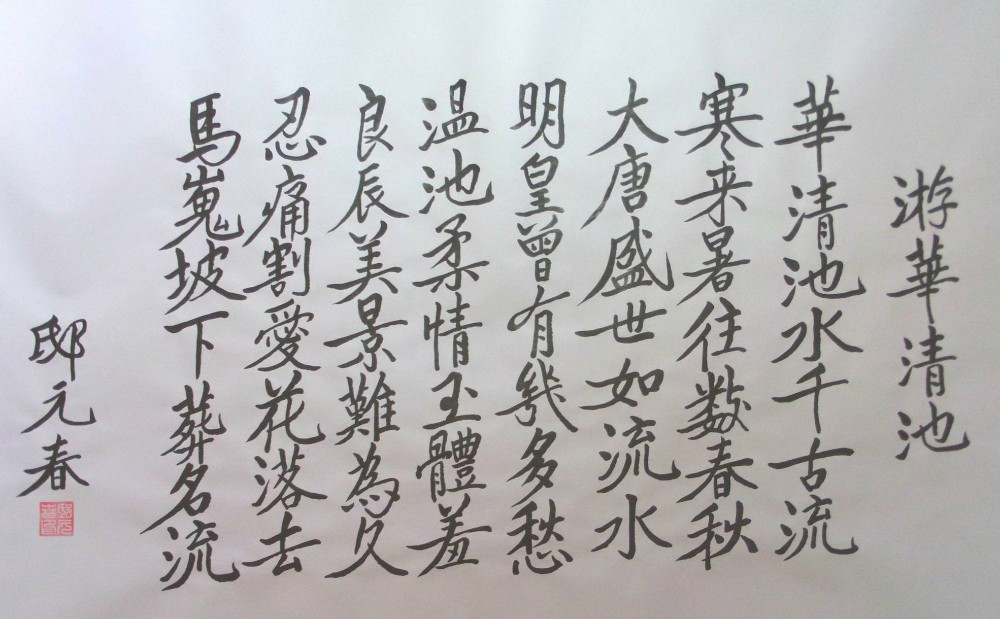 游華清池
華清池水千古流
寒来暑往数春秋
大唐盛世如流水
明皇曾有幾多愁
温池柔情玉體羞
良辰美景難為久
忍痛割愛花落去
馬嵬坡下葬名流
邸元春